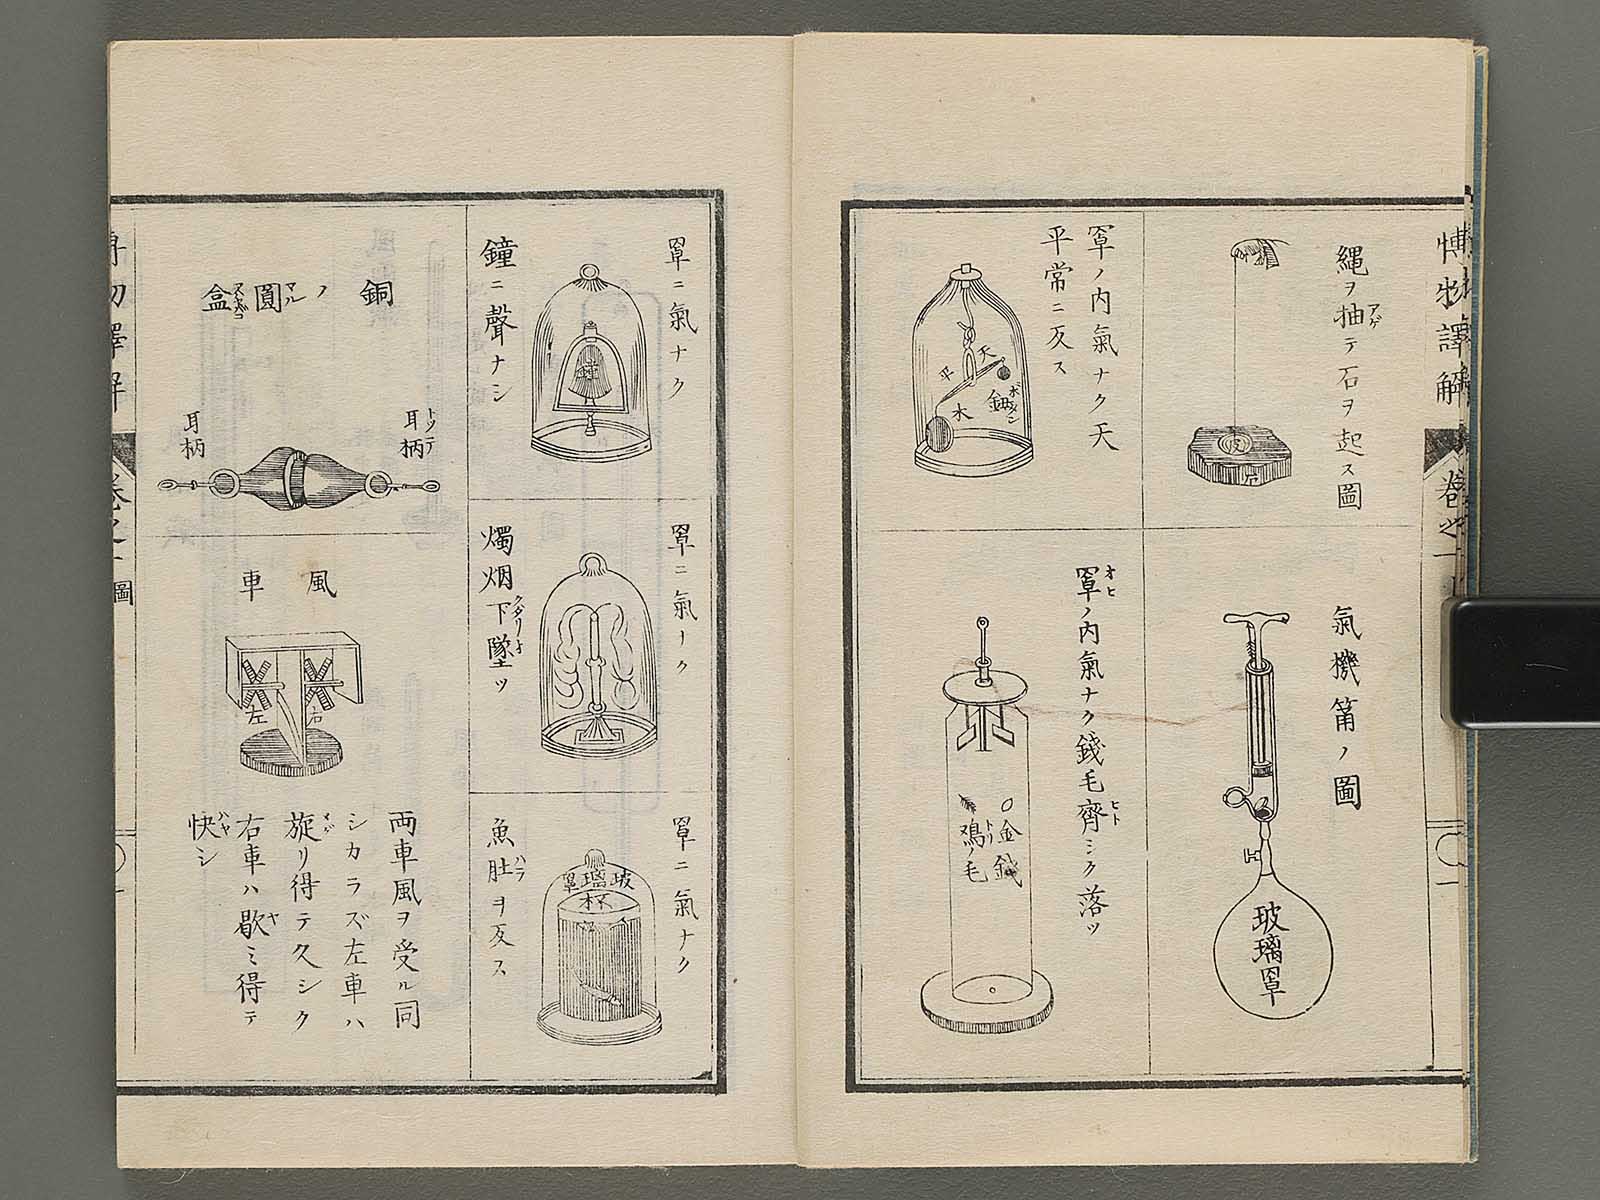 博物譯解 卷之一
縄ヲ抽テ石ヲ起ス圖
アゲ
皮
石
氣機筩ノ圖
玻璃罩
罩ノ内氣ナク天
平常ニ反ス
天
平
鈕
ボタン
木
罩ノ内氣ナク錢毛齊シク落ツ
オヒ
ヒト
金錢
鶏ノ毛
トリ
罩ニ氣ナク
鐘ニ聲ナシ
鐘
罩ニ氣ナク
燭烟下墜ツ
罩ニ氣ナク
魚肚ヲ反ス
ハラ
玻璃罩
杯
銅ノ圓盒
マル
耳柄
トツテ
耳柄
風車
右
左
両車風ヲ受ル同
シカラズ左車ハ
旋リ得テ久シク
右車ハ歇ミ得テ
ヤ
快シ
ハヤ
卷之一 圖